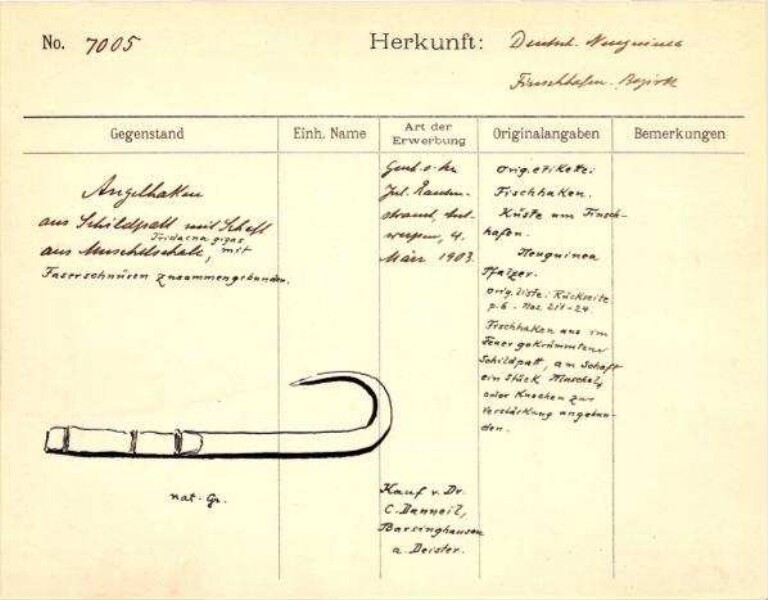 No. 7005
Herkunft: Deutsch. Neuguinea
Finschhafen. Bezirk
Gegenstand
Einh. Name
Art der Erwerbung
Originalangaben
Bemerkungen
Angelhaken
aus Schildpatt mit Schaft
Tridacna gigas
aus Muschelschale, mit
Faserschnüren zusammengebunden.
Jul.
werpen, 4.
März 1903.
Kauf v. Dr.
C. Danneil,
Barsinghausen
a. Deister.
Orig. etikette:
Fischhaken.
Küste um Finsch-
hafen.
Neuguinea
Orig. liste: Rückseite
p. 6. Noz 211-24.
Fischhaken aus im
Feuer gekrümmtem
Schildpatt, am Schaft
ein Stück Muschel,
oder Knochen zur
Verstärkung angebun-
den.
nat. Gr.